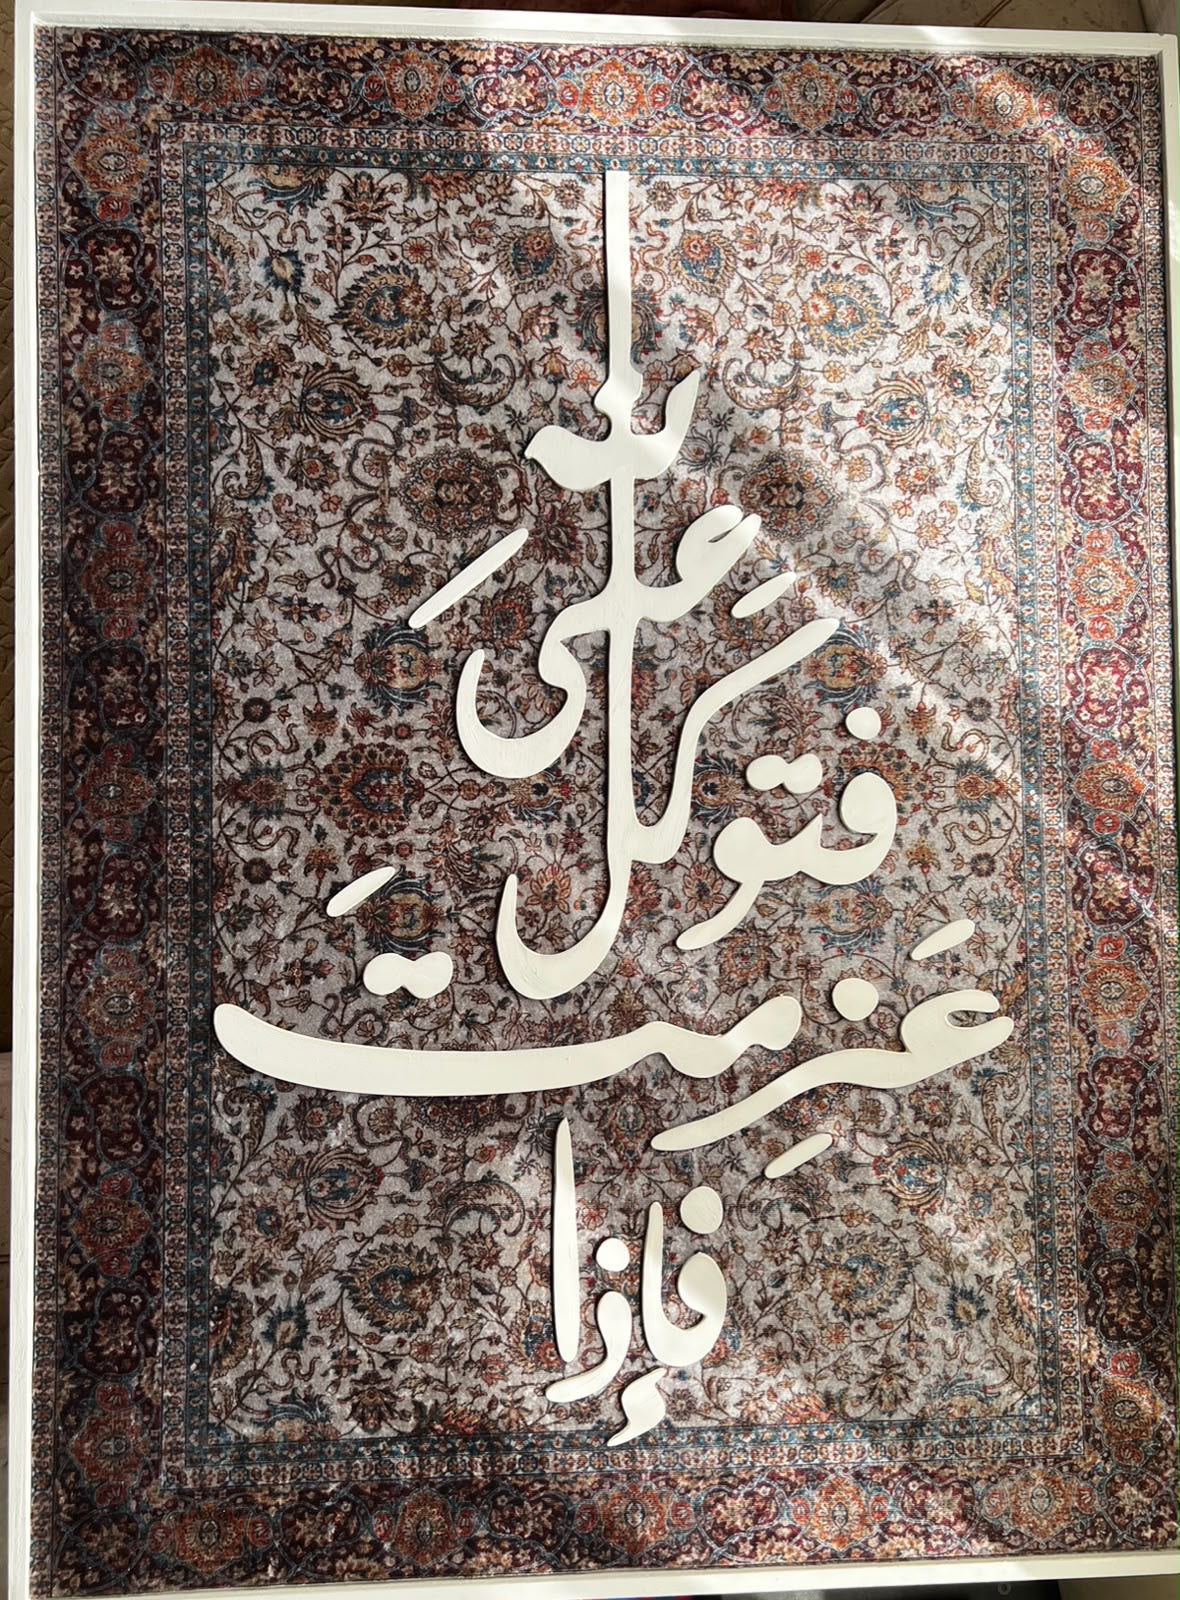 فإذا
عزمت
فتوكل
على
الله